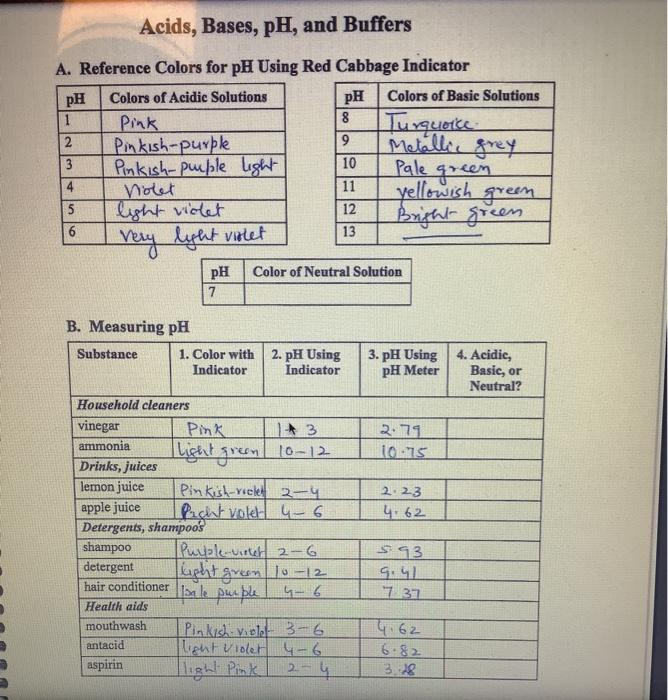 Acids, Bases, pH, and Buffers
A. Reference Colors for pH Using Red Cabbage Indicator
pH Colors of Acidic Solutions
1 Pink
2 Pinkish-purple
3 Pinkish-purple light
4 Violet
5 light violet
6 very light violet
pH Colors of Basic Solutions
8 Turquoise
9 Metallic grey
10 Pale green
11 yellowish green
12 Bright green
13
pH Color of Neutral Solution
7
B. Measuring pH
Substance 1. Color with Indicator 2. pH Using Indicator 3. pH Using pH Meter 4. Acidic, Basic, or Neutral?
Household cleaners
vinegar Pink 3 2.79
ammonia light green 10-12 10.75
Drinks, juices
lemon juice Pinkish-violet 2-4 2.23
apple juice violet 4-6 4.62
Detergents, shampoos
shampoo Purple-violet 2-6 5.93
detergent light green 10-12 9.41
hair conditioner pale purple 4-6 7.37
Health aids
mouthwash Pinkish-violet 3-6 4.62
antacid light violet 4-6 6.82
aspirin light Pink 2-4 3.28